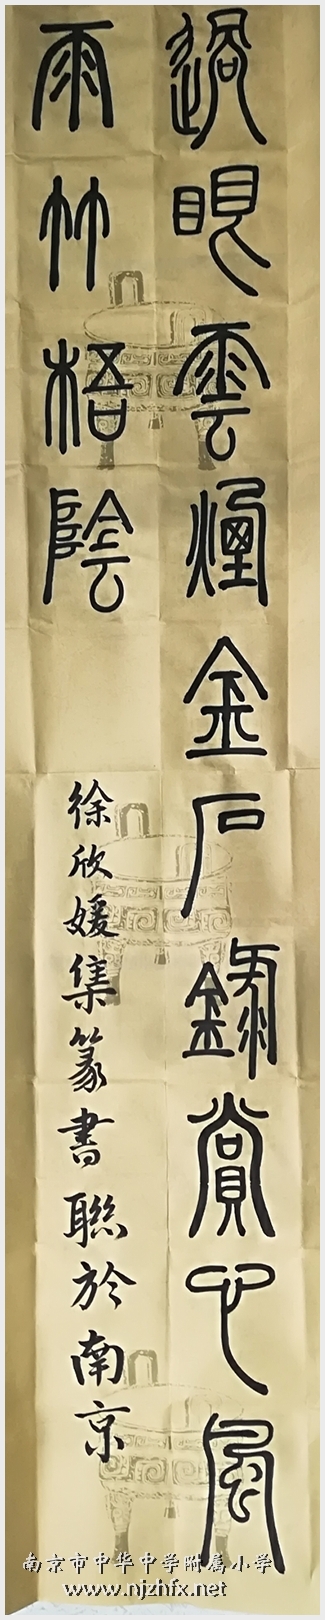 過眼雲煙金石錄賞心風
雨竹梧陰
徐欣媛集篆書聯於南京
南京市中华中学附属小学
www.njzhfx.net